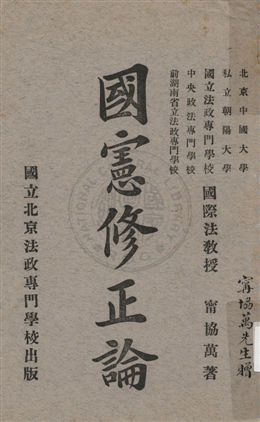 北京中國大學
私立朝陽大學
國立法政專門學校
中央政法專門學校
前湖南省立法政專門學校
國際法教授 甯協萬著
國憲修正論
國立北京法政專門學校出版
甯協萬先生贈